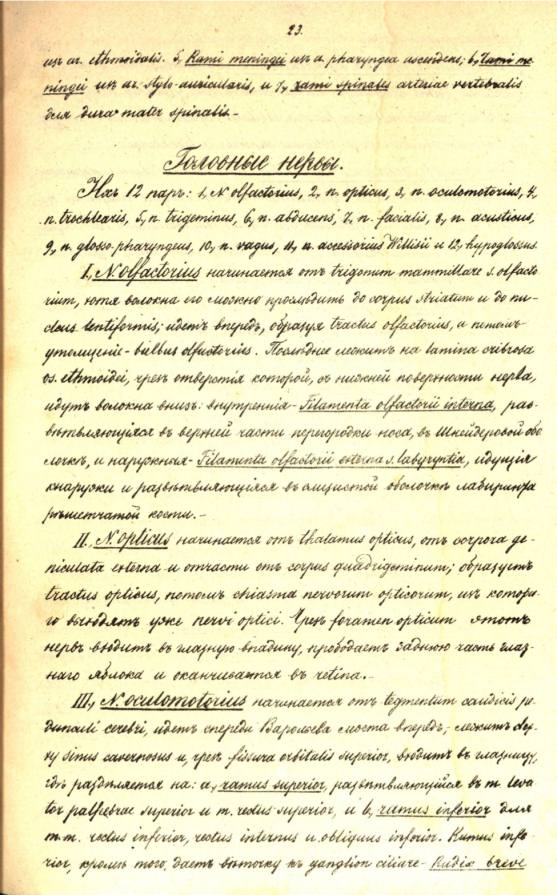 23.
изъ ar. ethmoidalis. 5, Rami meningei изъ a. pharyngea ascendens; 6, rami me-
ningei изъ ar. stylo-auricularis, и 7, rami spinales arteriae vertebralis
для dura mater spinalis.-
Головные нервы.
Ихъ 12 паръ: 1, N olfactorius, 2, n. opticus, 3, n. oculomotorius, 4,
n. trochlearis, 5, n. trigeminus, 6, n. abducens, 7, n. facialis, 8, n. acusticus,
9, n. glosso-pharyngeus, 10, n. vagus, 11, n. accessorius Willisii и 12, hypoglossus.
I, N. olfactorius начинается отъ trigonum mammillare s. olfacto-
rium, хотя волокна его можно прослѣдить до corpus striatum и до nu-
cleus lentiformis; идетъ впередъ, образуя tractus olfactorius, а потомъ
утолщеніе - bulbus olfactorius. Послѣднее лежитъ на lamina cribrosa
os. ethmoidei, чрезъ отверстія которой, съ нижней поверхности нерва,
идутъ волокна внизъ: внутреннія - Filamenta olfactorii interna, раз-
вѣтвляющіяся въ верхней части перегородки носа, въ Шнейдеровой обо
лочкѣ, и наружныя - Filamenta olfactorii externa s. labyryntia, идущія
кнаружи и развѣтвляющіяся въ слизистой оболочкѣ лабиринта
рѣшетчатой кости.-
II, N. opticus начинается отъ thalamus opticus, отъ corpora ge-
niculata externa и отчасти отъ corpus quadrigeminum; образуетъ
tractus opticus, потомъ chiasma nervorum opticorum, изъ которо-
го выходятъ уже nervi optici. Чрезъ foramen opticum этотъ
нервъ входитъ въ глазную впадину, прободаетъ заднюю часть глаз-
наго яблока и оканчивается въ retina.-
III, N. oculomotorius начинается отъ tegmentum caudicis pe-
dunculi cerebri, идетъ спереди Вароліева моста впередъ, лежитъ свер-
ху sinus cavernosus и, чрезъ fissura orbitalis superior, входитъ въ глазницу,
гдѣ раздѣляется на: a, ramus superior, развѣтвляющійся въ m. leva
tor palpebrae superior и m. rectus superior, и b, ramus inferior для
m.m. rectus inferior, rectus internus и obliquus inferior. Ramus infe-
rior, кромѣ того, даетъ вѣточку къ ganglion ciliare - Radix breve